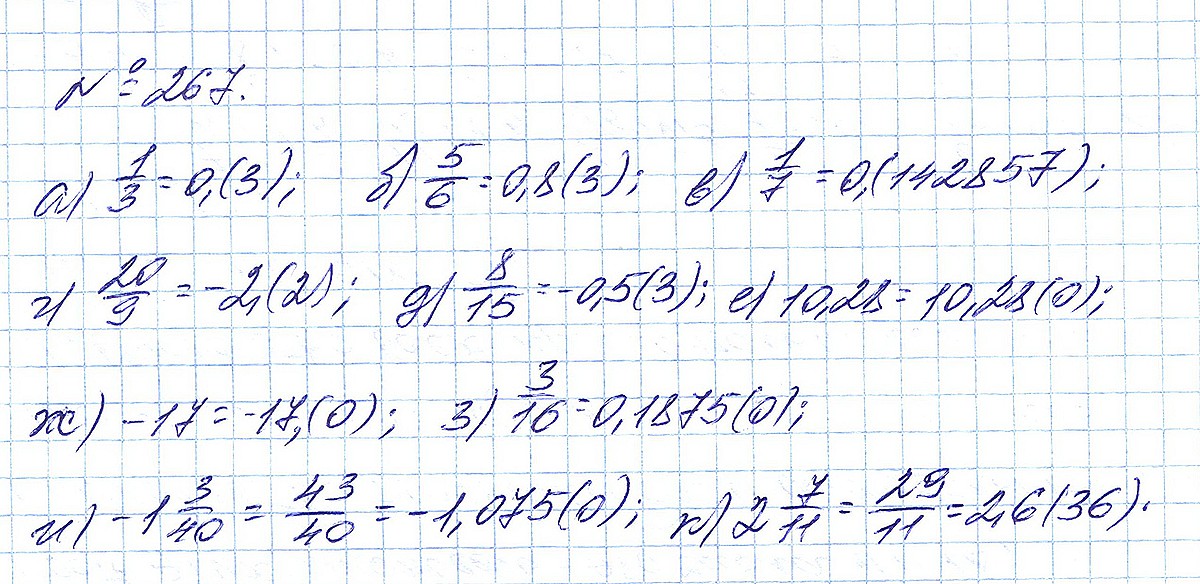 № 267.
а) 1/3 = 0,(3); б) 5/6 = 0,8(3); в) 1/7 = 0,(142857);
г) 20/9 = -2,(2); д) 8/15 = -0,5(3); е) 10,28 = 10,28(0);
ж) -17 = -17,(0); з) 3/16 = 0,1875(0);
и) -1 3/40 = 43/40 = -1,075(0); к) 2 7/11 = 29/11 = 2,6(36).